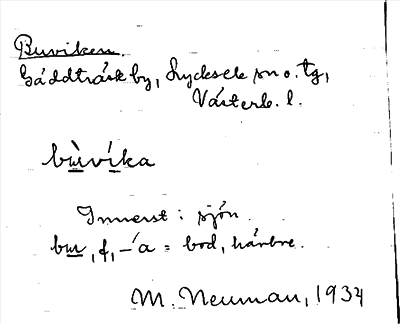 Buviken.
Gäddträsk by, Lycksele sn o. tg,
Västerb. l.
bùvíka
Innerst i sjön.
bu, f, -ía = bod, härbre.
M. Neuman, 1934